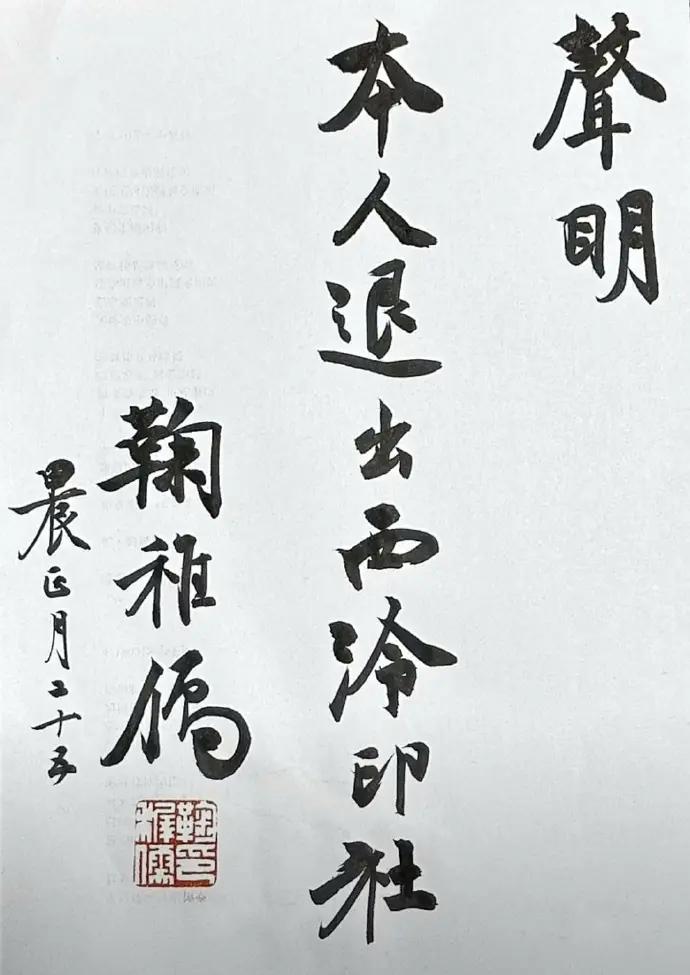 聲明
本人退出西泠印社
鞠稚儒
農正月二十五
鞠印
稚儒